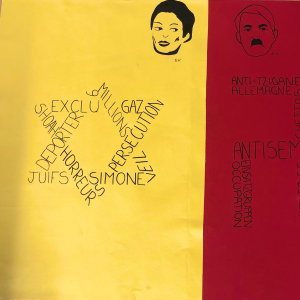 EXCLU
6 MILLIONS
GAZ
SHOAH
PERSECUTION
DEPORTER
HORREURS
JUIFS
SIMONE
VEIL
ANTI-TZIGANE
ALLEMAGNE
ANTISEM
EINSATZGRUPPEN
OCCUPATION